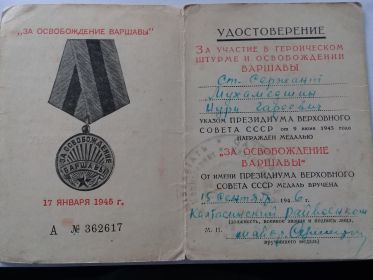 „ЗА ОСВОБОЖДЕНИЕ
ВАРШАВЫ"
ЗА ОСВОБОЖДЕНИЕ
ВАРШАВЫ
17 ЯНВАРЯ 1945 г.
А № 362617
УДОСТОВЕРЕНИЕ
ЗА УЧАСТИЕ В ГЕРОИЧЕСКОМ
ШТУРМЕ И ОСВОБОЖДЕНИИ
ВАРШАВЫ
Ст. Сержант
Мухамедшин
Нури Гареевич
УКАЗОМ ПРЕЗИДИУМА ВЕРХОВНОГО
СОВЕТА СССР от 9 июня 1945 года
НАГРАЖДЕН МЕДАЛЬЮ
„ЗА ОСВОБОЖДЕНИЕ
ВАРШАВЫ"
От ИМЕНИ ПРЕЗИДИУМА ВЕРХОВНОГО
СОВЕТА СССР МЕДАЛЬ ВРУЧЕНА
15 Сентября 1946 г.
Райвоенком
(должность, воинское звание и подпись лица,
М. П.
вручившего медаль)